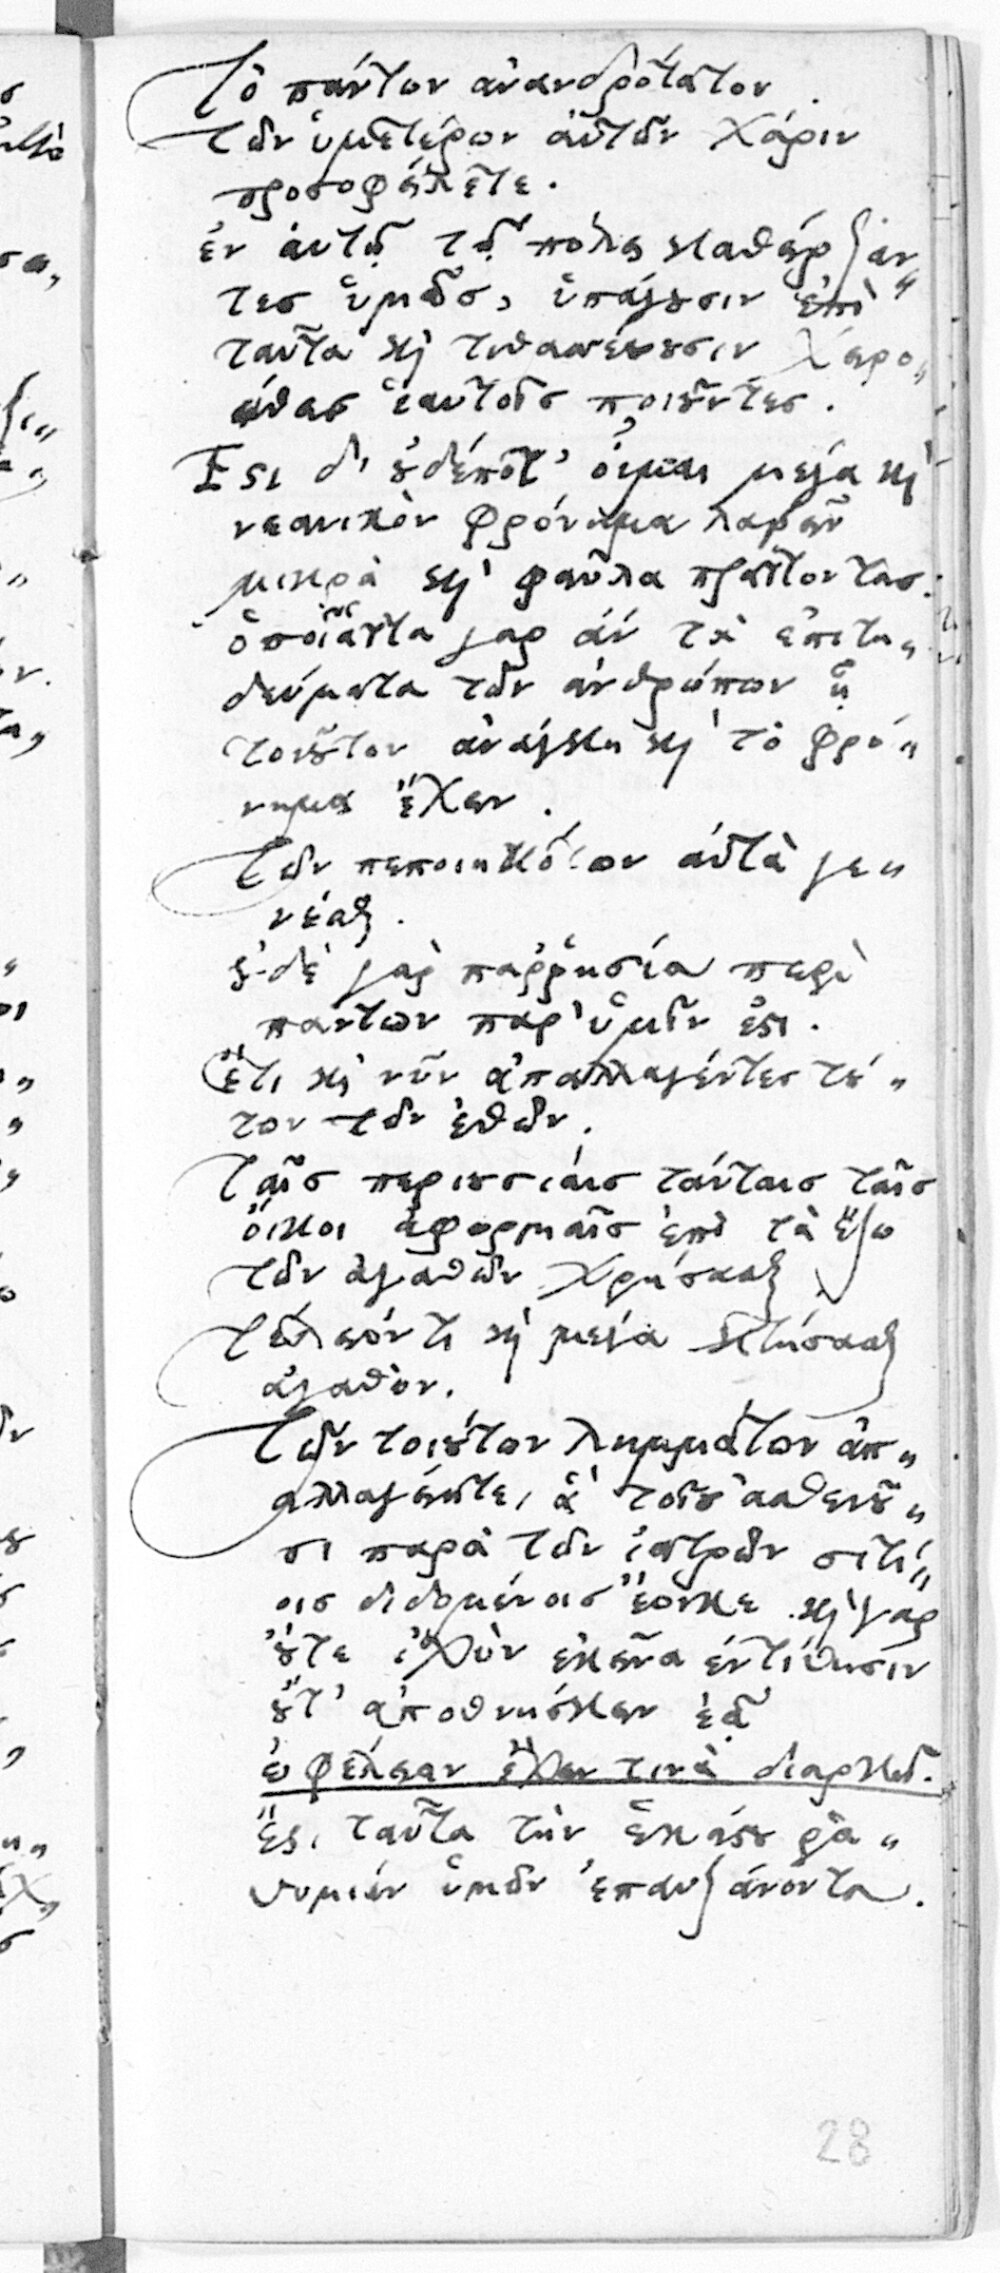 Τὸ πάντων ἀνανδρότατον.
τῶν ὑμετέρων αὐτῶν χάριν
προσοφείλετε.
ἐν αὐτῇ τῇ πόλει καθείρξαν„
τες ὑμᾶς, ὑπάγουσιν ἐπὶ
ταῦτα καὶ τιθασεύουσιν χειρο„
ήθεις ἑαυτοῖς ποιοῦντες.
Ἔστι δ' οὐδέποτ' οἶμαι μέγα καὶ
νεανικὸν φρόνημα λαβεῖν
μικρὰ καὶ φαῦλα πράττοντας.
ὁποῖ' ἄττα γαρ ἂν τὰ ἐπιτη„
δεύματα τῶν ἀνθρώπων ᾖ
τοιοῦτον ἀνάγκη καὶ τὸ φρό„
νημα ἔχειν.
Τῶν πεποιηκότων αὐτὰ γε„
νέσθαι.
οὐδὲ γὰρ παῤῥησία περὶ
πάντων παρ' ὑμῖν ἐστι.
Ἔτι καὶ νῦν ἀπαλλαγέντες τού„
των τῶν ἐθῶν.
Ταῖς περιουσίαις ταύταις ταῖς
οἴκοι ἀφορμαῖς ἐπὶ τὰ ἔξω
τῶν ἀγαθῶν χρήσασθαι
τέλειόν τι καὶ μέγα κτήσασθαι
ἀγαθὸν.
Τῶν τοιούτων λημμάτων ἀπ„
αλλαγείητε, ἃ τοῖς ἀσθενοῦ„
σι παρὰ τῶν ἰατρῶν σιτί„
οις διδομένοις ἔοικε. καὶ γὰρ
οὔτε ἰσχὺν ἐκεῖνα ἐντίθησιν
οὔτ' ἀποθνήσκειν ἐᾷ
ὠφέλειαν ἔχειν τινὰ διαρκῆ.
Ἔστι ταῦτα τὴν ἑκάστου ῥᾳ„
θυμίαν ὑμῶν ἐπαυξάνοντα.
28